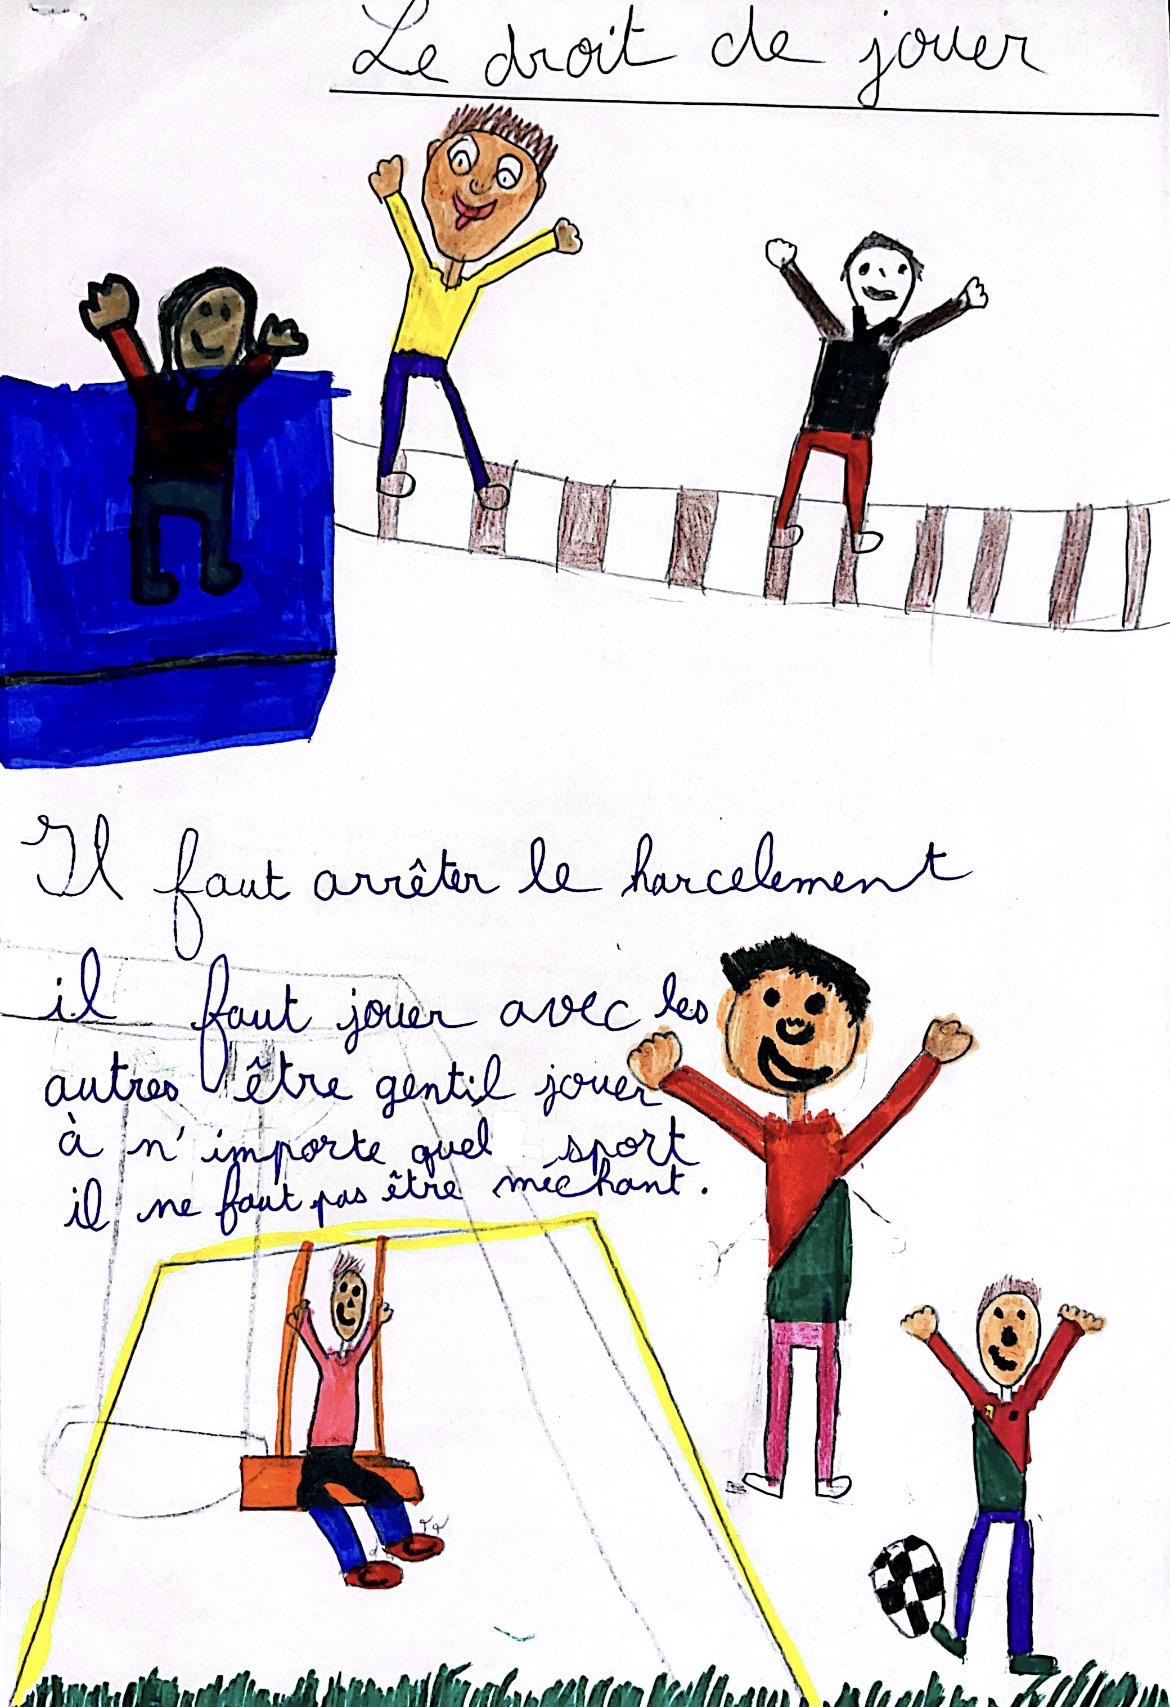 Le droit de jouer
Il faut arrêter le harcelement
il faut jouer avec les
autres être gentil jouer
à n'importe quel sport
il ne faut pas être méchant.